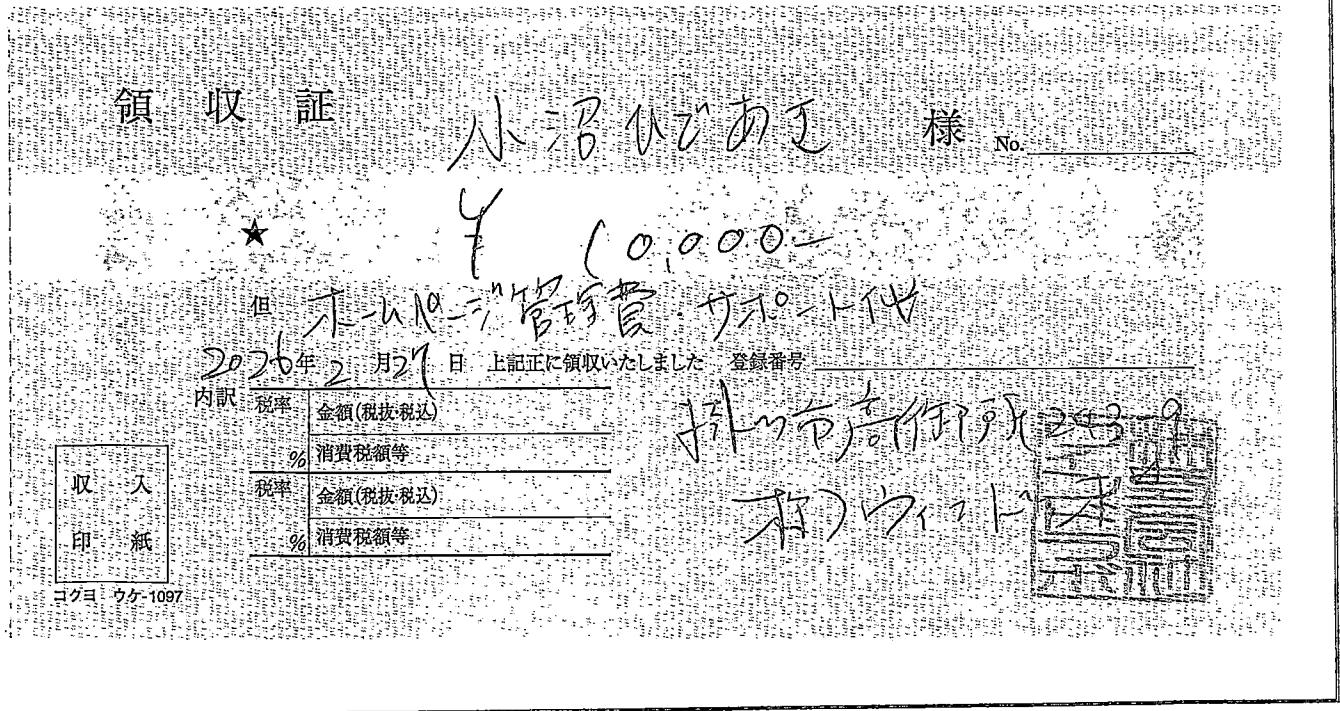 領収証 小沼ひであき 様 No.
★ ¥10,000-
但 ホームページ管理費・サポート代
2026年2月27日 上記正に領収いたしました 登録番号
内訳 税率 % 金額(税抜・税込)
消費税額等
税率 % 金額(税抜・税込)
消費税額等
掛川市高御所243-9
㈱ウィンド
収入
印紙
コクヨ ウケ-1097